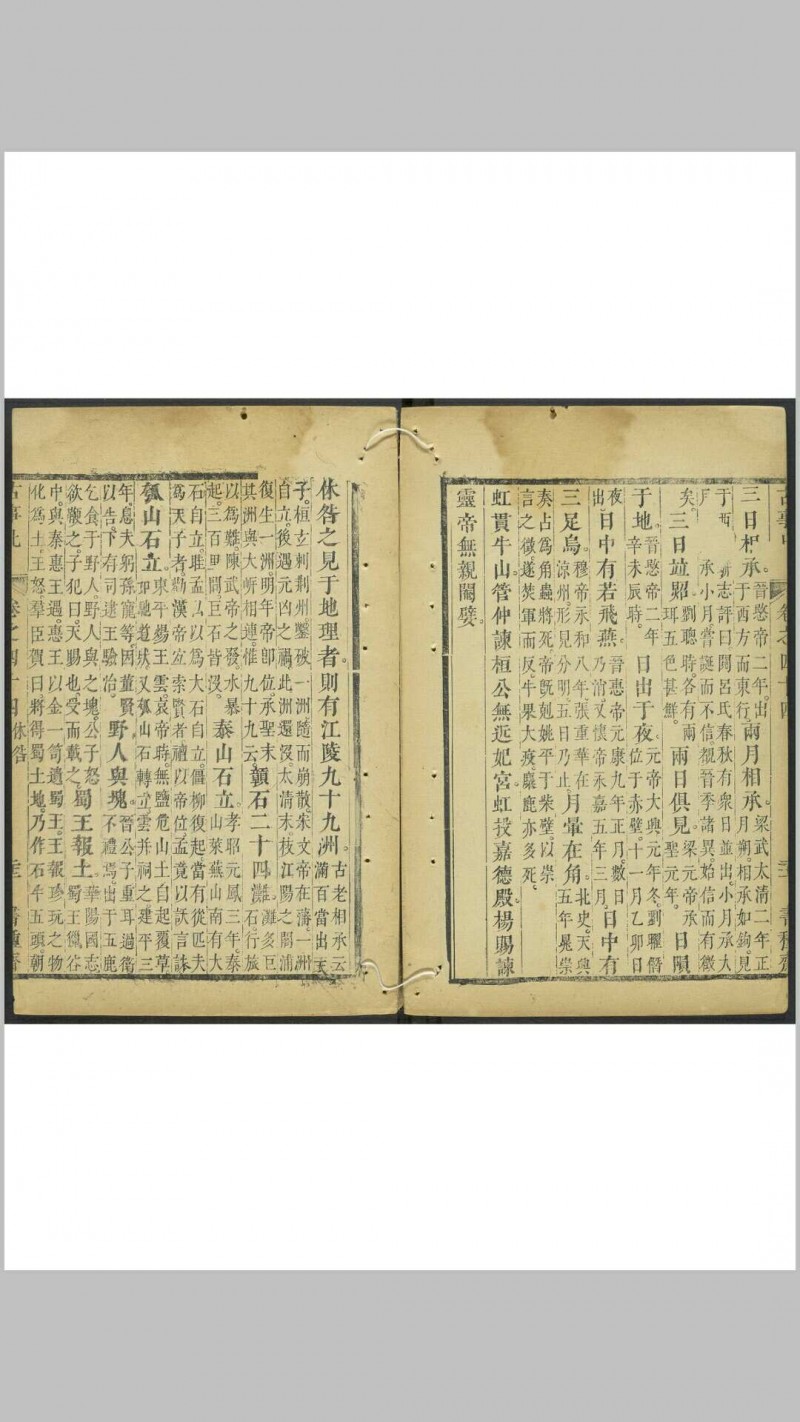 卷之四十四
三日相承。晉愍帝二年出于西方而東行。兩月相承。梁武太清二年正月朔。相承如鉤見
于西 志評曰閱呂氏春秋有衆日並出。小月承大月 承小月嘗誕而不信觀晉季諸異。始信而有徵
矣。三日竝照。劉聰時。各有兩珥五色甚鮮。兩日俱見。梁元帝承聖元年。日隕
于地。晉愍帝二年辛未辰時。日出于夜。元帝大興元年冬。劉曜僭位于赤壁。十一月乙卯日
夜出。日中有若飛燕。晉惠帝元康九年正月。數日乃消又懷帝永嘉五年三月。日中有
三足烏。穆帝永和八年張重華在涼州。形見分明。五日乃止。月暈在角。北史。天興五年晁崇
奏占爲角蟲將死。帝旣剋姚平于柴壁。以崇言之徵遂焚軍而反。牛果大疫。麋鹿亦多死。
虹貫牛山。管仲諫桓公無近妃宮。虹投嘉德殿。楊賜諫
靈帝無親閹嬖。
休咎之見于地理者。則有江陵九十九洲。古老相承云滿百當出天
子。桓玄刺荊州。鑿破一洲。隨而崩散。宋文帝在藩一洲自立。後遇元凶之禍此洲還沒。太清末枝江陽之閣浦
復生一洲。明年帝卽位。承聖末其洲與大岍相連。惟九十九云。贑石二十四灘。灘多巨石。行旅
以爲難。陳武帝之發。水暴起。三百里間。巨石皆沒。泰山石立。孝昭元鳳三年泰山萊蕪山南有大
石自立。眭孟以爲大石自立。僵柳復起當有從匹夫爲天子者。勸漢帝宜索賢者。禮以帝位。孟竟以訞言誅
瓠山石立。東平煬王雲。哀帝時。無鹽危山土自起覆草如馳道狀。又瓠山石轉立。雲并祠之。建平三
年。息夫躬孫寵等。因董賢以告。下有司逮王驗治。野人與塊。晉公子重耳過衛不禮焉。出于五鹿
乞食于野人。野人與之塊。公子怒欲鞭之。子犯曰。天賜也。受而載之。蜀王報土。華陽國志蜀王獵谷
中。與秦惠王遇。惠王以金一笥遺蜀王。王報珍玩之物化爲土。王怒。羣臣賀曰。將得蜀土地。乃作石牛五頭朝
古事比 卷之四十四 休咎 書種齋